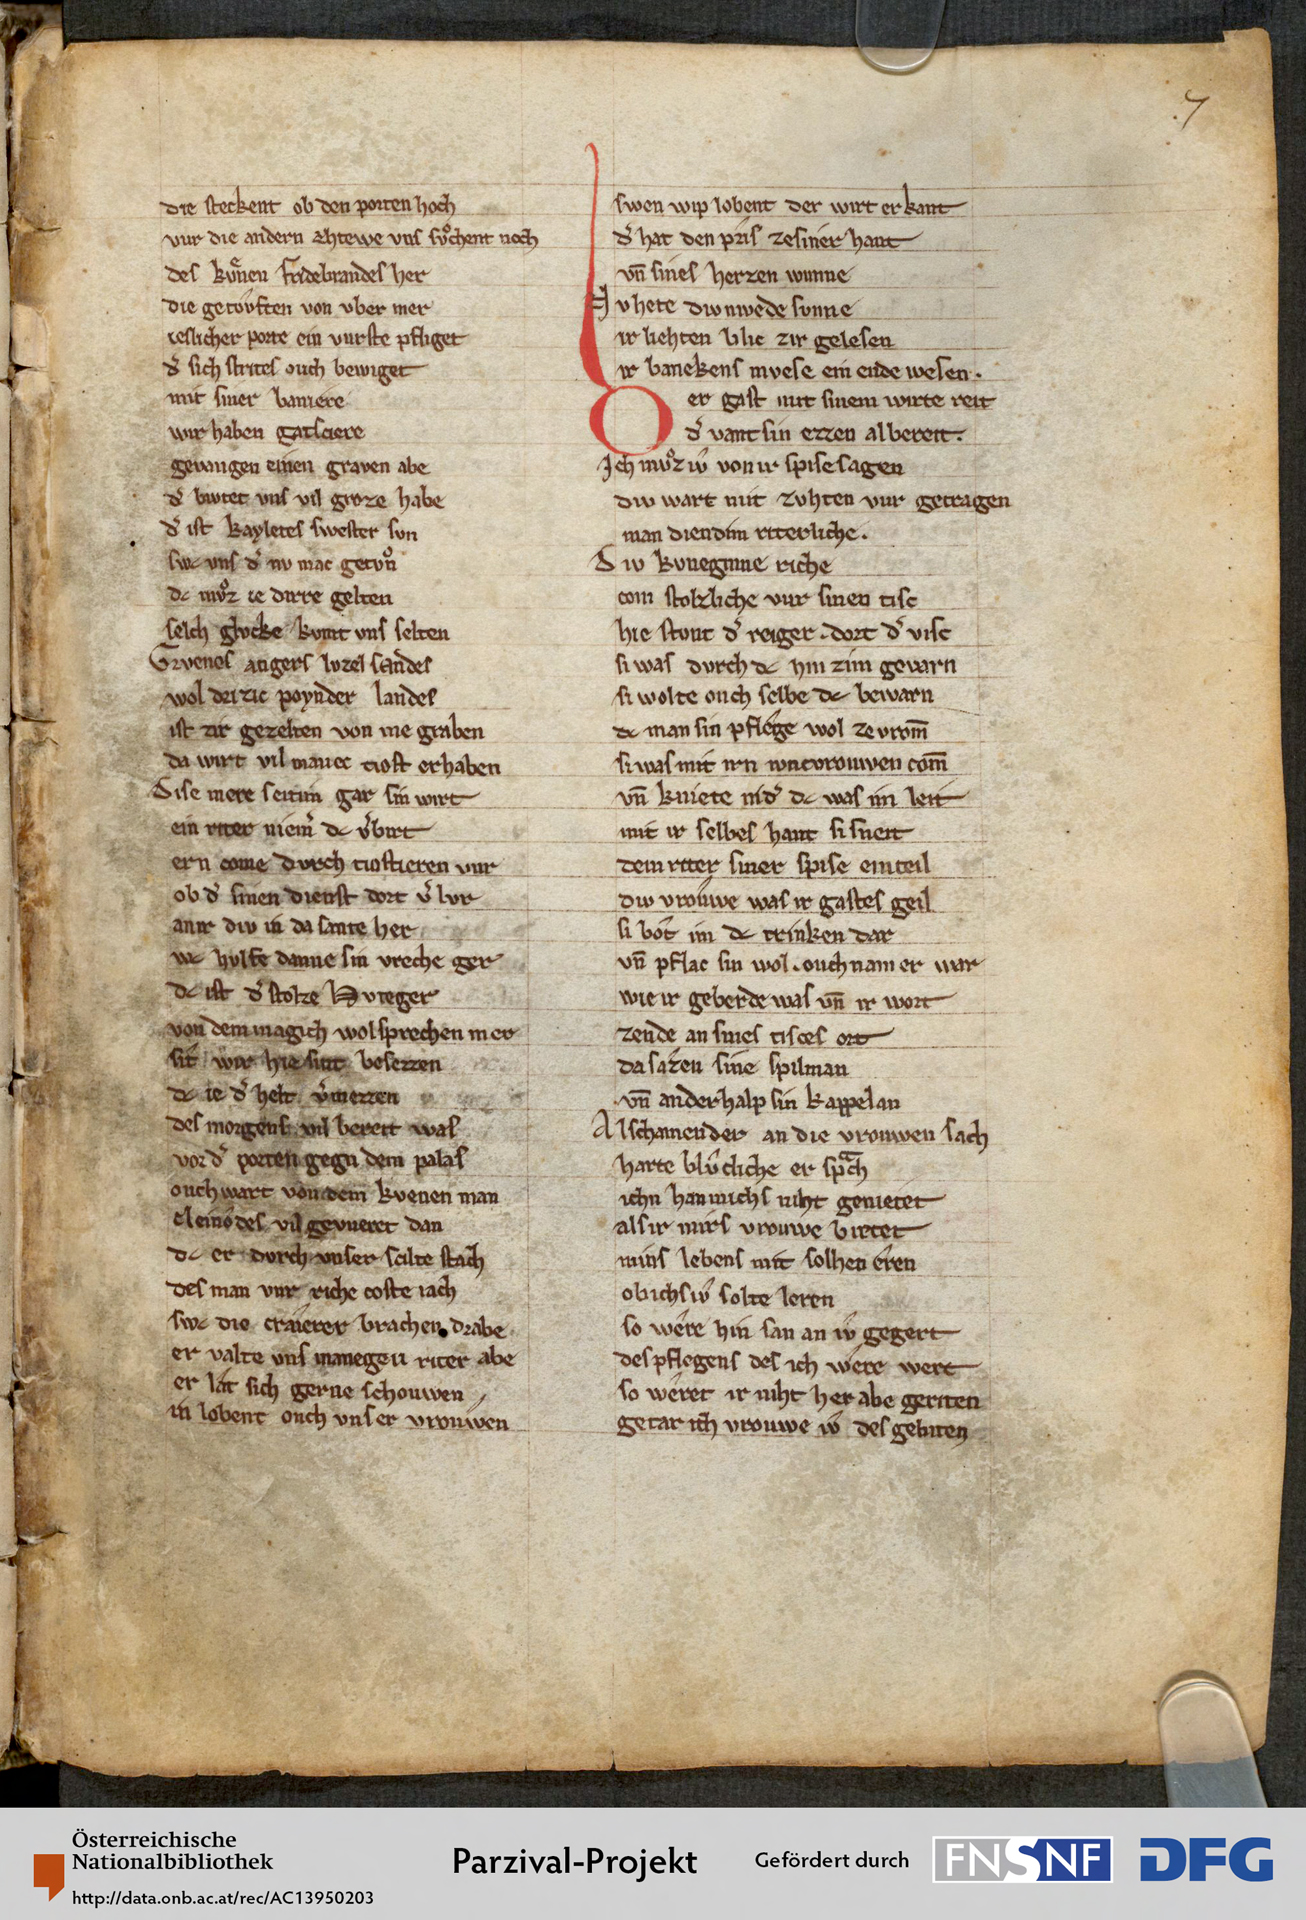 7
die steckent ob den porten hoch
vur die andern æhtewe vns sůchent noch
des kuͤnen fridebrandes her
die getouften von vber mer
ieslicher porte ein vurste pfliget
dˢ sich strites ouch bewiget
mit siner baniere
wir haben gatsciere
gevangen einen graven abe
dˢ biutet vns vil groze habe
dˢ ist kayletes swester sun
swc vns dˢ nv mac getuͦn
dc muͦz ie dirre gelten
selch glvcke kumt vns selten
Grvenes angers luzel sandes
wol drizic poynder landes
ist zir gezelten von me graben
da wirt vil manec tiost erhaben
Dise mere seitim gar sin wirt
ein riter niemˢ dc vˢbirt
ern come dvrch tiostieren vur
ob dˢ sinen dienst dort vˢlur
an ir div in da sante her
wc hulfe danne sin vreche ger
dc ist dˢ stolze Hvteger
von dem magich wol sprechen mer
sit wir hie sint besezzen
dc ie dˢ helt vˢmezzen
des morgens vil bereit was
vor dˢ porten gegn dem palas
ouch wart von dem kvenen man
cleinodes vil gevueret dan
dc er dvrch vnser scilte stach
des man vur riche coste iach
swc die craierer brachen drabe
er valte vns manegen riter abe
er lat sich gerne schouwen
in lobent ouch vnser vrouwen
swen wip lobent der wirt erkant
dˢ hat den pris zesiner hant
vn̄ sines herzen wunne
Nv hete div mvede sunne
ir liehten blic zir gelesen
ir banekens mvese ein ende wesen.
Der gast mit sinem wirte reit
dˢ vant sin ezzen al bereit.
Ich muͦz iv̂ von ir spise sagen
div wart mit zvhten vur getragen
man diendim riterliche.
Div kvneginne riche
com stolzliche vur sinen tisc
hie stvnt dˢ reiger. dort dˢ visc
si was dvrch dc hin zim gevarn
si wolte ouch selbe dc bewarn
dc man sin pflege wol ze vrom̄
si was mit irn iuncvrouwen com̄
vn̄ kniete nidˢ dc was im leit
mit ir selbes hant si sneit
dem riter siner spise ein teil
div vrouwe was ir gastes geil
si bot im dc trinken dar
vn̄ pflac sin wol. ouch nam er war
wie ir geberde was vn̄ ir wort
zende an sines tisces ort
da sazen sine spilman
vn̄ anderhalp sin kappelan
Al schamender an die vrouwen sach
harte bluͦcliche er spͣch
ichn han michs niht genietet
als ir mirs vrouwe bietet
mins lebens mit solhen eren
ob ichs iv̂ solte leren
so were hin san an iv̂ gegert
des pflegens des ich were wert
so weret ir niht her abe geriten
getar ich vrouwe iv̂ des gebiten
Österreichische
Nationalbibliothek
http://data.onb.ac.at/rec/AC13950203
Parzival-Projekt
Gefördert durch
FNSNF
DFG